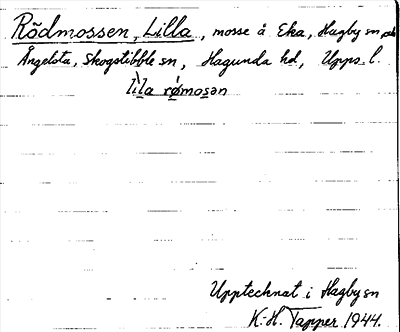 Rödmossen, Lilla, mosse å Eka, Hagby sn, och
Ängelsta, Skogstibble sn, Hagunda hd, Upps. l.
lìla rǿmosən
Upptecknat i Hagby sn
K.-H. Tapper 1944.